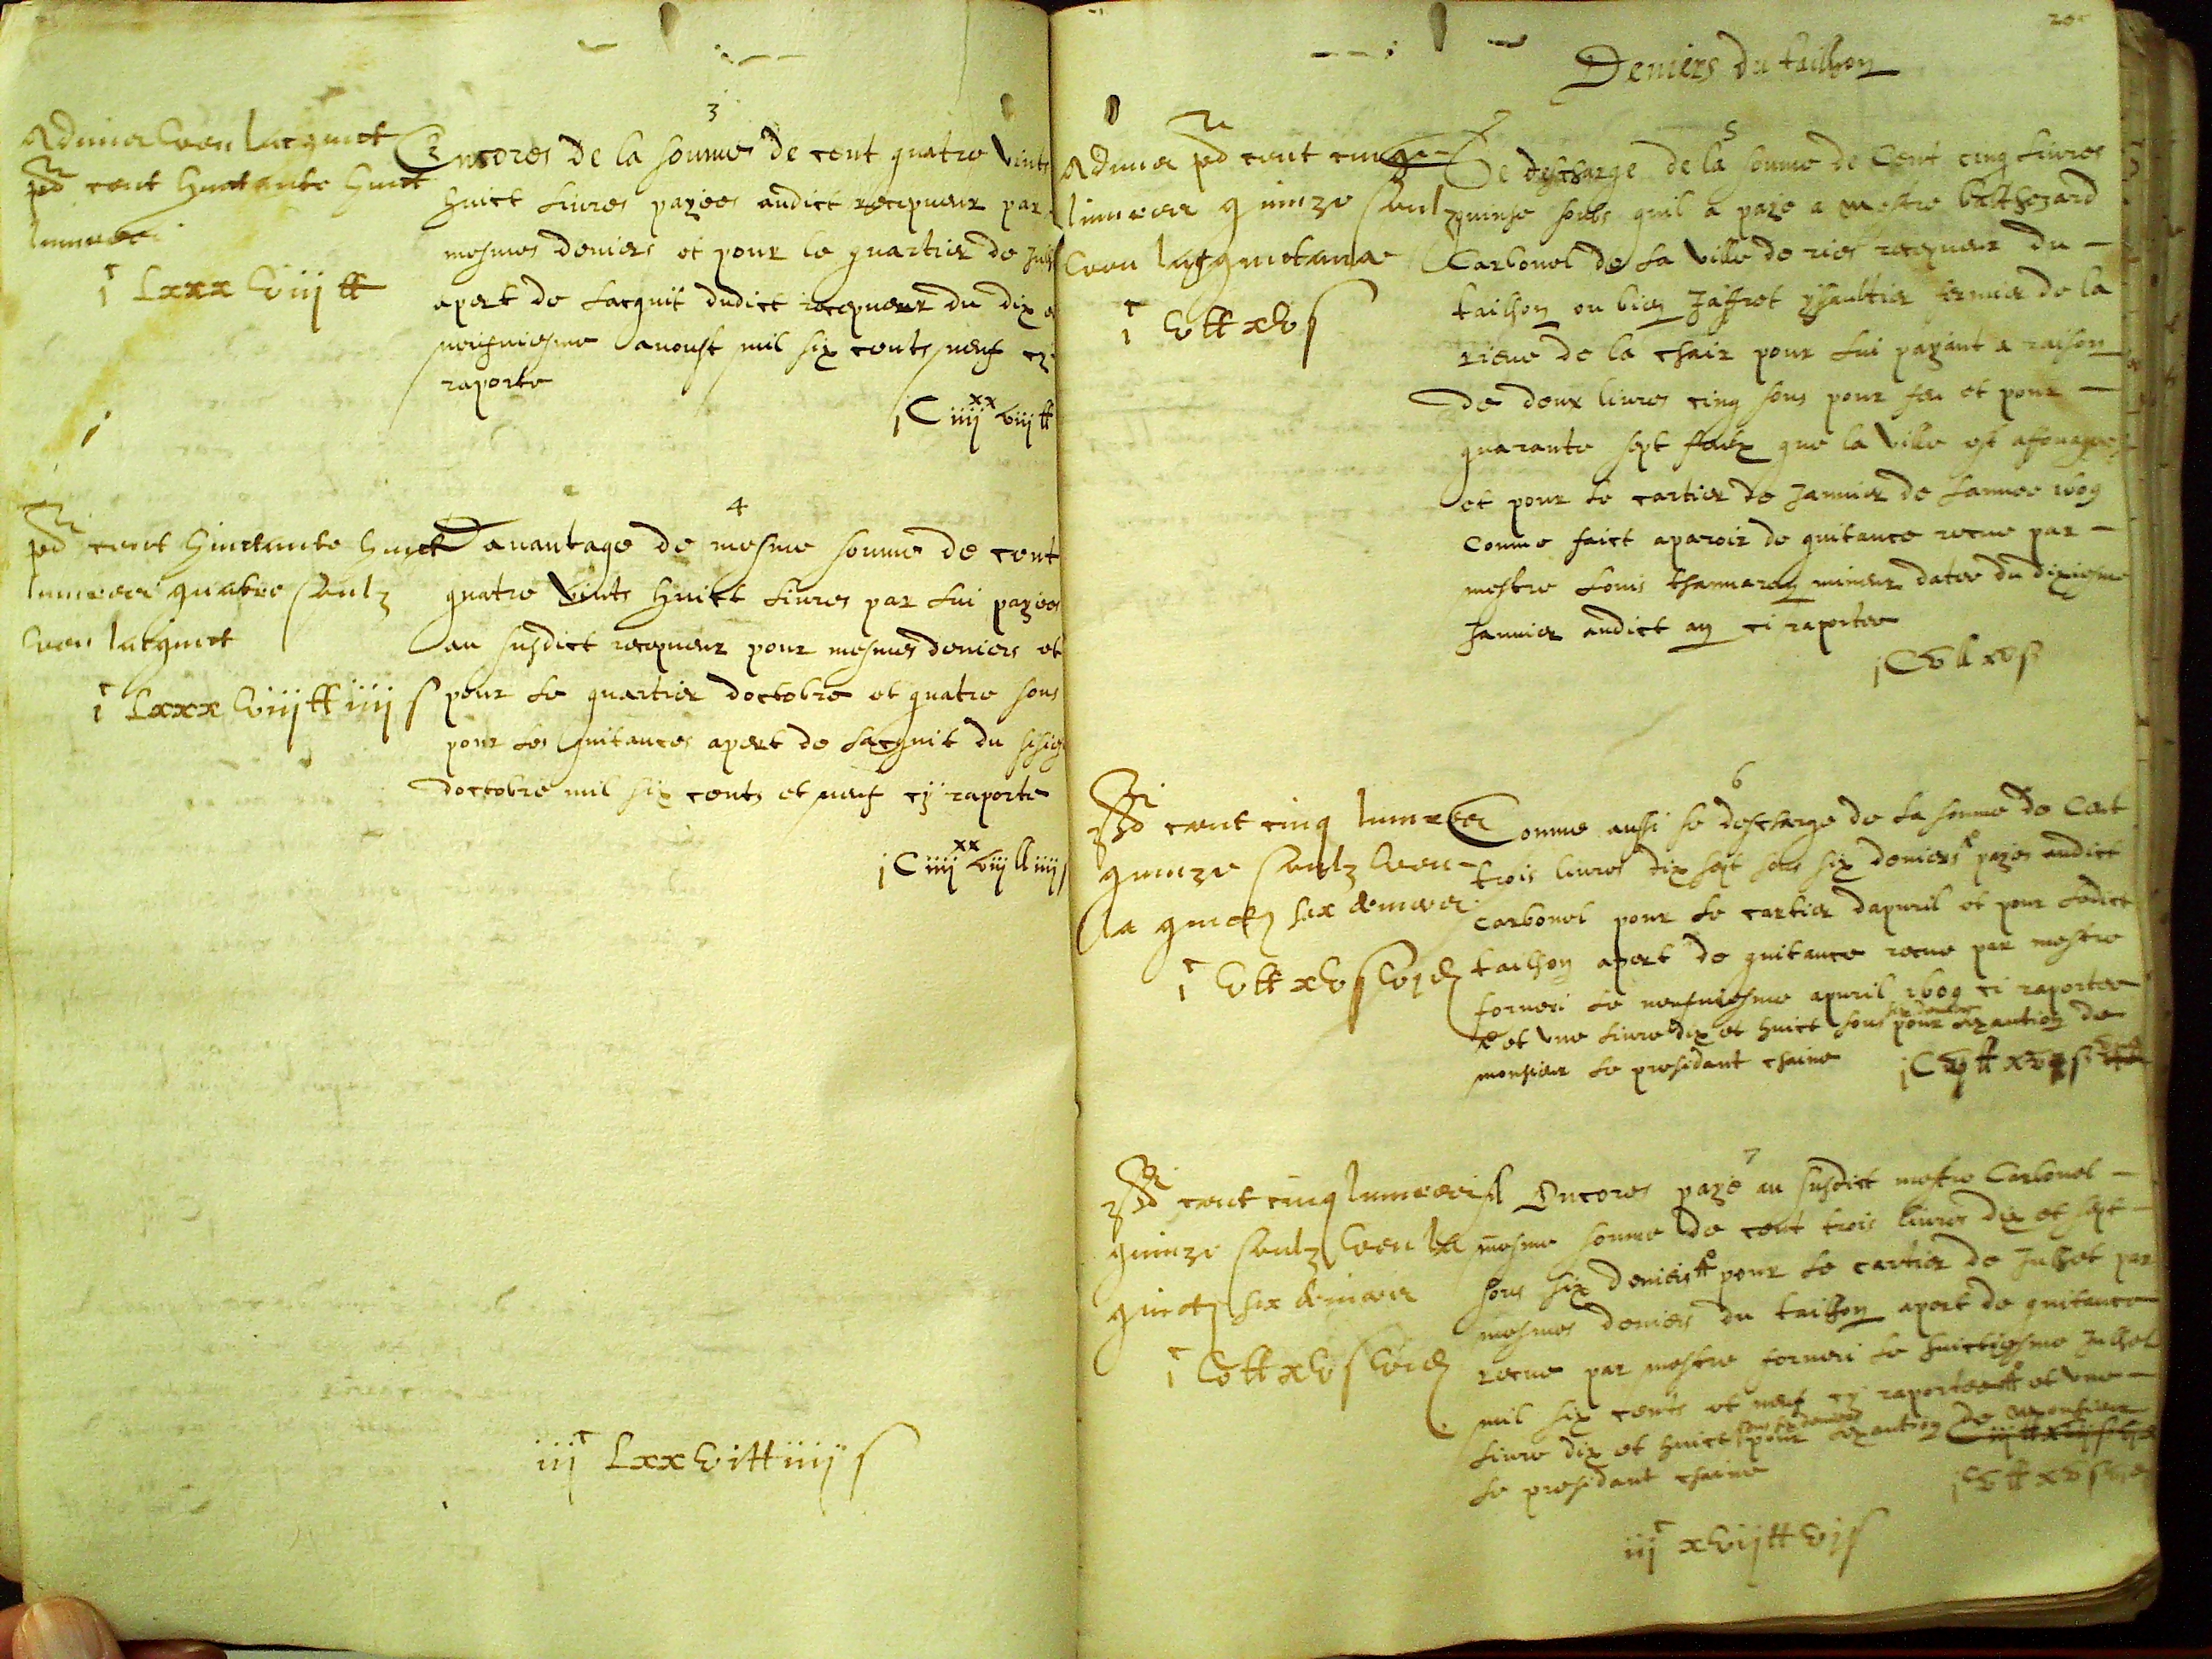 3
Admis veu lacquet
pd cent huictante huict
livres
i^c Lxxx viij tt
Encores de la somme de cent quatre vints
huict livres payées audict recepveur par
mesmes deniers et pour le quartier de
apert de lacquit dudict recepveur du dix e
neufviesme avoust mil six cents neuf cy
raporte
j C iiij^xx viij tt
4
pd cent huictante huict
livres quatre soulz
veu lacquet
i^c Lxxx viij tt iiij s
Davantage de mesme somme de cent
quatre vints huict livres par lui payées
au susdict recepveur pour mesmes deniers et
pour le quartier doctobre et quatre sous
pour les quitances apert de lacquit du
doctobre mil six cents et neuf cy raporte
j C iiij^xx viij ll iiij s
iij^c Lxxvi tt iiij s
Deniers du tailhon
5
Admis pd cent cinq
livres quinze soulz
veu lacquictance
i^c v tt xv s
Se descharge de la somme de Cent cinq livres
quinse soubs quil a payé a mestre balthezard
Carbonel de la ville de ries recepveur du
tailhon ou bien Jaffret ysaultier fermier de la
rieve de la chair pour lui payant a raison
de deux livres cinq sous pour feu et pour
quarante sept feux que la ville est afouagée
et pour le cartier de Janvier de lannee 1609
Comme faict aparoir de quitance receue par
mestre Louis mineur datée du dixiesme
Janvier audict an ci raportée
j C v ll xv s
6
pd cent cinq livres
quinze soulz veu
la quictz six deniers
i^c v tt xv s vj d
Comme aussi se descharge de la somme de Cent
trois livres dix sept sous six deniers payés audict
Carbonel pour le cartier dapvril et pour ledict
tailhon apert de quitance receue par mestre
forneri le neufviesme apvril 1609 ci raportée
et une livre dix et huict sous six deniers pour lexantion de
monsieur le presidant chaine
7
pd cent cinq livres
quinze soulz veu la
quictz six deniers
i^c v tt xv s vj d
Encores payé au susdict mestre Carbonel
mesme somme de cent trois livres dix et sept
sous six deniers pour le cartier de Julhet par
mesmes deniers du tailhon apert de quitance
receue par mestre forneri le huictiesme Julhet
mil six cents et neuf cy raportée et une
livre dix et huict sous six deniers pour lexantion de monsieur
le presidant chaine
iij^c xvij tt vj s